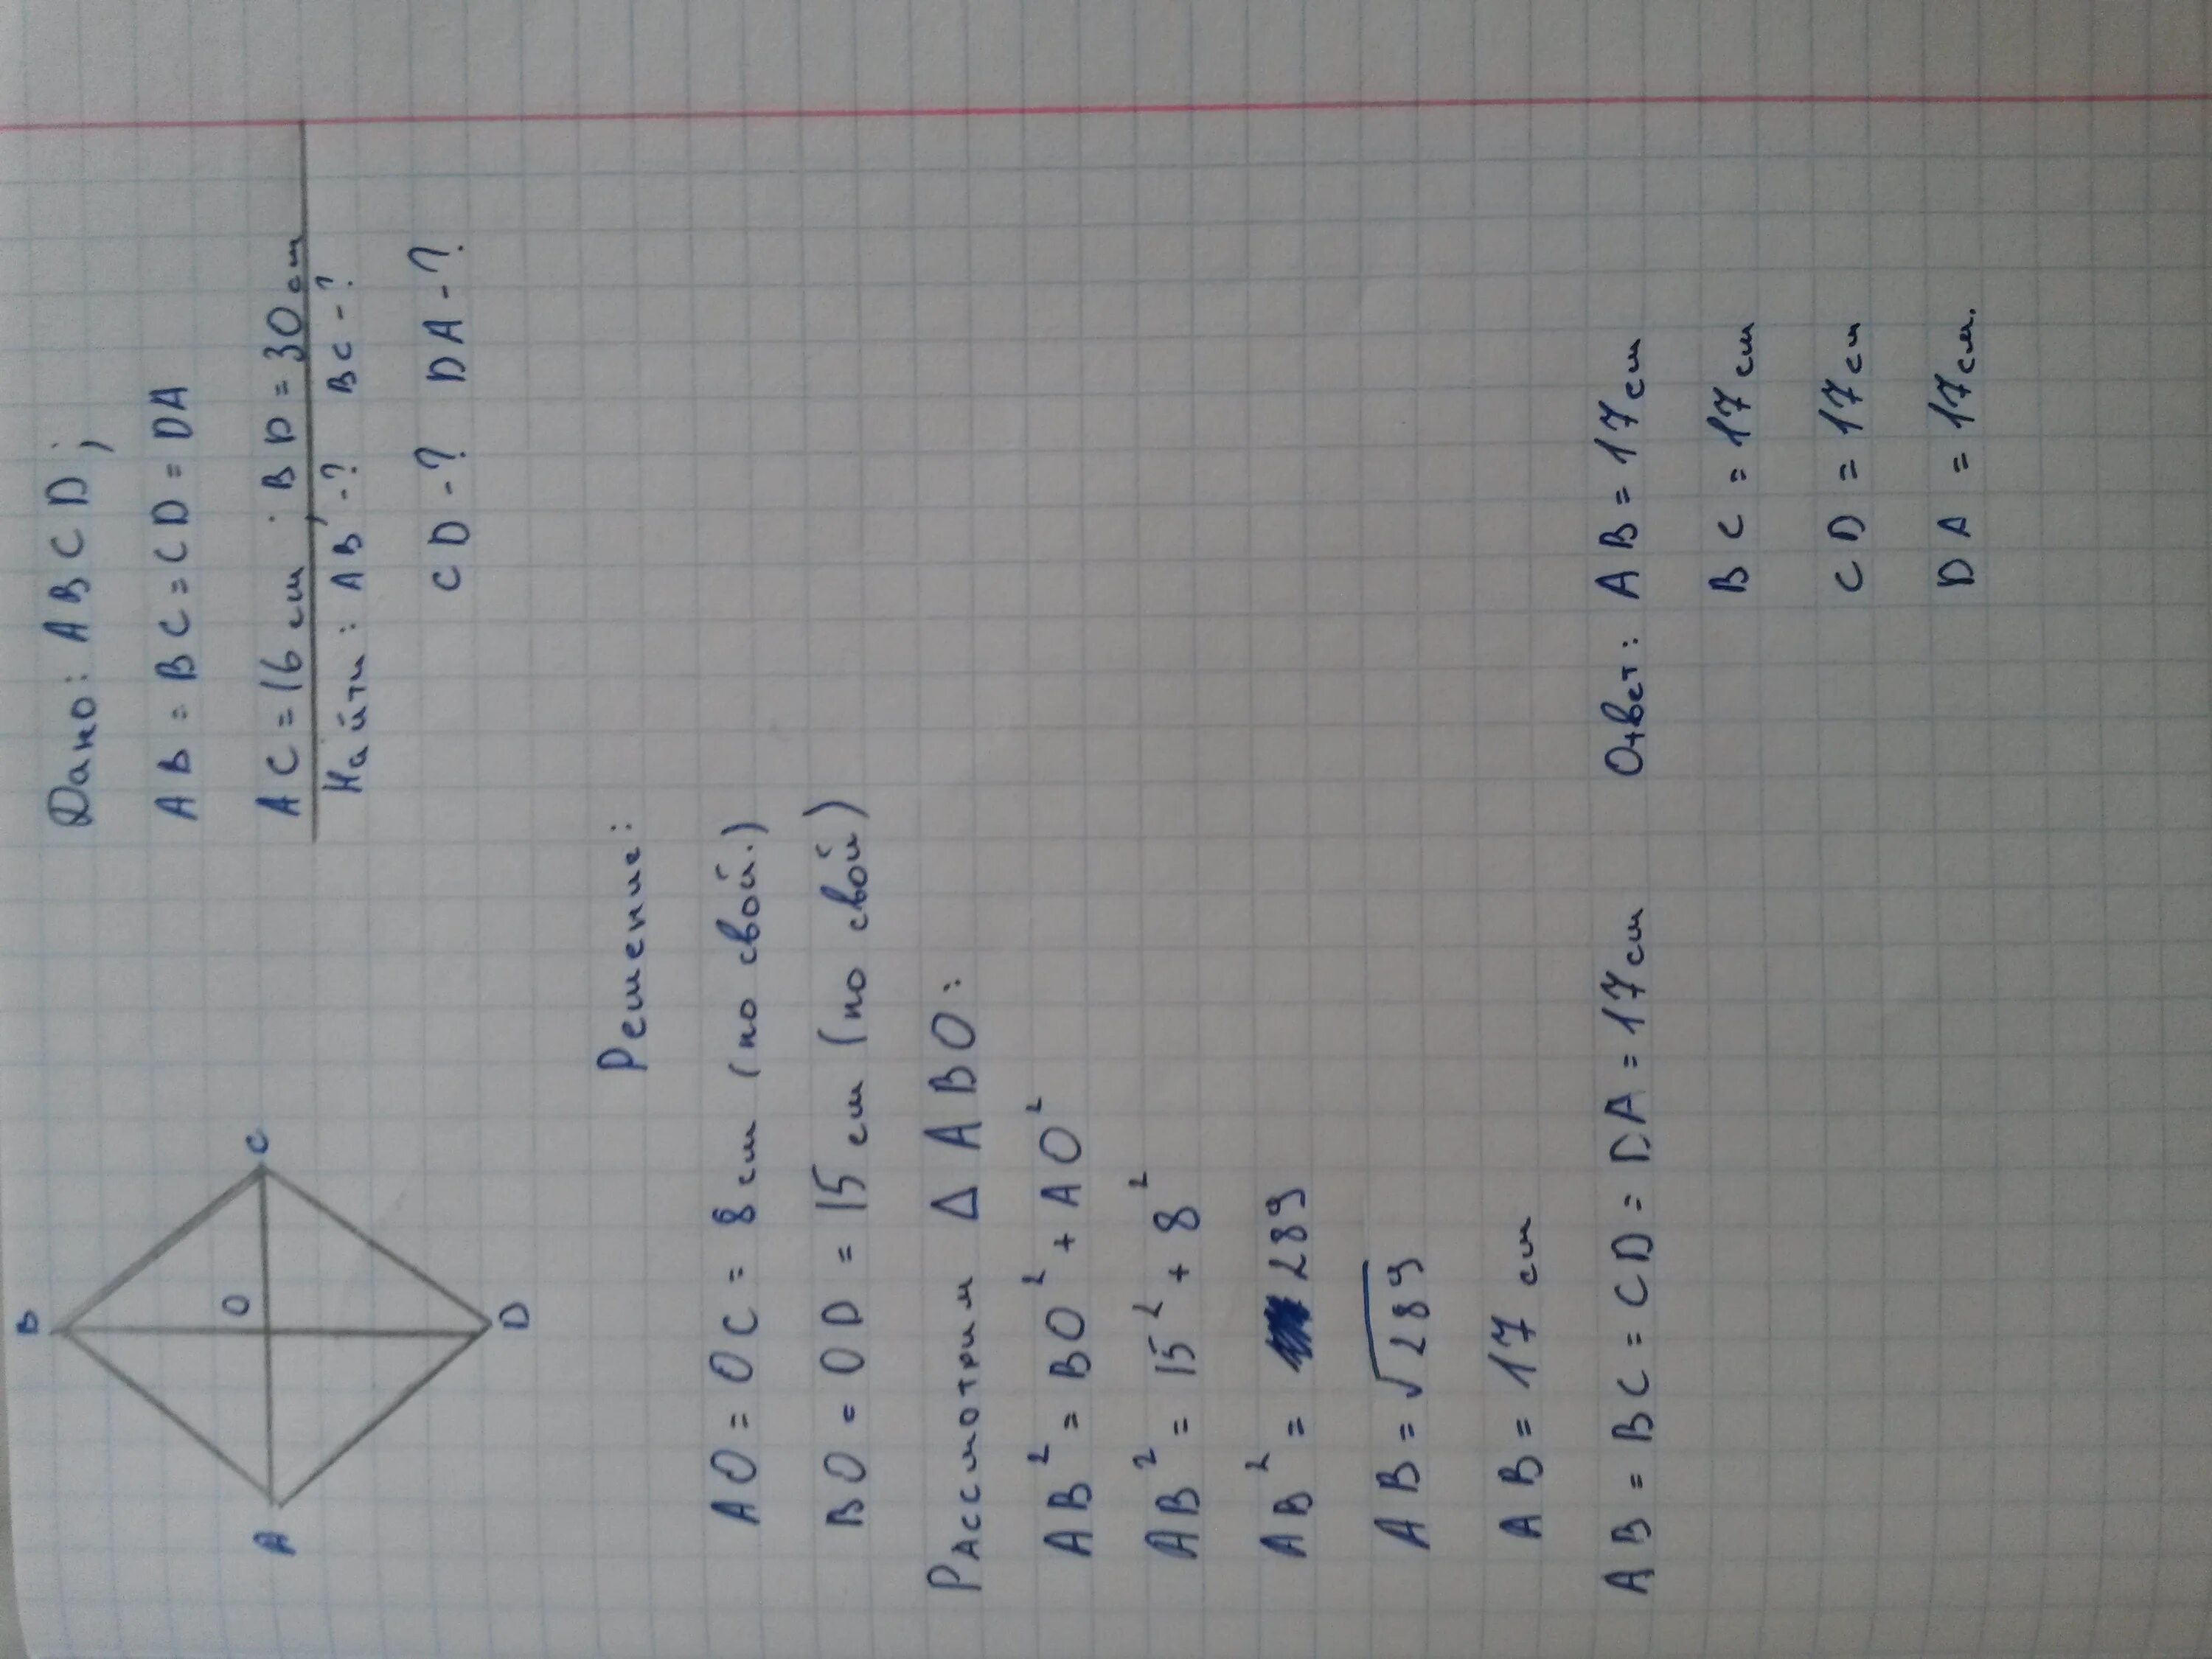 B
O
A
C
D
Дано: ABCD;
AB = BC = CD = DA
AC = 16 см; BD = 30 см
Найти: AB-? BC-?
CD-? DA-?
Решение:
AO = OC = 8 см (по свой.)
BO = OD = 15 см (по свой)
Рассмотрим Δ ABO:
AB² = BO² + AO²
AB² = 15² + 8²
AB² = 289
AB = √289
AB = 17 см
AB = BC = CD = DA = 17 см
Ответ: AB = 17 см
BC = 17 см
CD = 17 см
DA = 17 см.